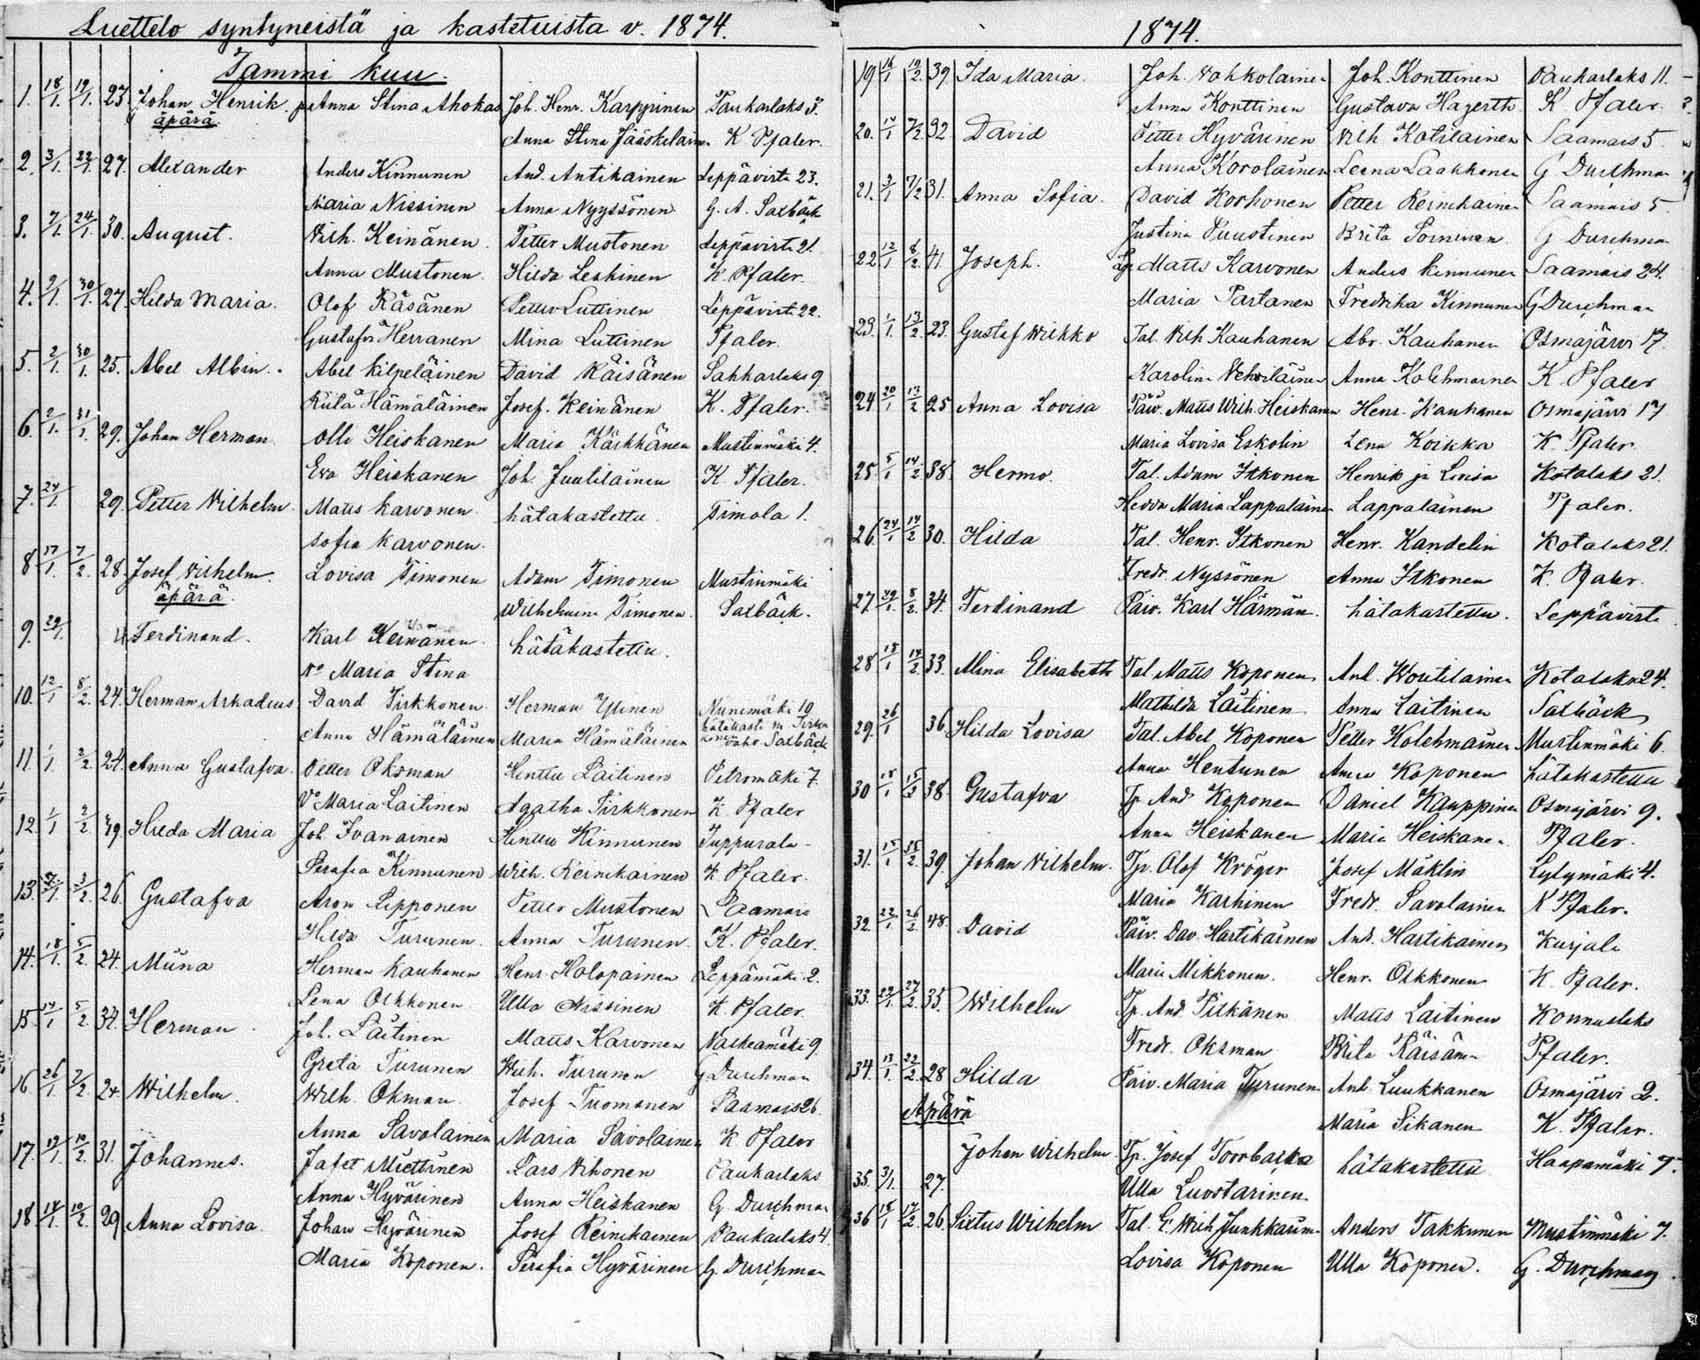 Luettelo syntyneistä ja kastetuista v. 1874.
Tammi kuu.
1. 18/1. 19/1. 23. Johan Henrik Anna Stina Ahokas Joh. Henr. Karppinen Paukarlaks 3.
äpärä Anna Stina Jääskeläinen K Pfaler.
2. 3/1. 27. Alexander Anders Kinnunen And. Antikainen Leppävirta 23.
Maria Nissinen Anna Nyyssönen G. A. Saxbäck
3. 7/1. 24/1. 30. August. Wilh. Keinänen Petter Mustonen Leppävirta 21.
Anna Mustonen Hilda Leskinen K. Pfaler.
4. 2/1. 30/1. 27. Hilda Maria. Olof Räsänen Petter Luttinen Leppävirt. 22.
Gustafva Herranen Mina Luttinen Pfaler.
5. 2/1. 30/1. 25. Abel Albin. Abel Kilpeläinen David Räisänen Sahkarlaks 9
Riita Hämäläinen Josef. Keinänen K. Pfaler.
6. 2/1. 31/1. 29. Johan Herman. Olli Heiskanen Maria Kärkkänen Mustinmäki 4.
Eva Heiskanen Joh. Juutilainen K Pfaler.
7. 24/1 29. Petter Vilhelm. Matts Karvonen hätäkastettu. Timola 1.
Sofia Karvonen.
8. 17/1. 7/2. 28. Josef Vilhelm. Lovisa Timonen Adam Timonen Mustinmäki
äpärä Wilhelmina Timonen. Saxbäck.
9. 29/1. Ferdinand. Karl Keinänen. hätäkastettu.
Maria Stina
10. 12/1 8/2. 24. Herman Arkadius David Tirkkonen Herman Ylinen Nunnmäki 19
Anna Hämäläinen Maria Hämäläinen Saxbäck
11. 1/1. 2/2. 24. Anna Gustafva. Petter Oksman Henttu Laitinen Petromäki 7.
Maria Laitinen Agatha Tirkkonen K Pfaler
12. 1/1 2/2 19. Hilda Maria Joh. Ivanainen Henttu Kinnunen Tuppurala
Serafia Kinnunen Wilh. Reinikainen K Pfaler.
13. 3/2. 26. Gustafva Aron Lipponen Petter Mustonen Saamais
Hilda Turunen. Anna Turunen. K. Pfaler.
14. 18/1. 5/2. 24. Miina Herman Kauhanen Henr. Holopainen Leppämäki 2.
Lena Olkkonen Ulla Nissinen K Pfaler.
15. 14/1. 5/2. 34. Herman. Joh. Laitinen Matts Karvonen Valkeamäki 9
Greta Turunen Wilh. Turunen G Durchman
16. 26/1. 7/2. 24. Wilhelm. Wilh. Okman. Josef Tuomanen Saamais 26.
Anna Savolainen Maria Savolainen K Pfaler
17. 19/1. 10/2. 31. Johannes. Jafet Miettinen Lars Vihonen Paukarlaks
Anna Hyvärinen Anna Heiskanen G. Durchman
18. 14/1. 10/2. 29. Anna Lovisa. Johan Hyvärinen Josef Reinikainen Paukarlaks 4.
Maria Koponen. Serafia Hyvärinen G. Durchman
1874.
19. 16/1 19/2. 39. Ida Maria. Joh. Vahkolainen Joh. Konttinen Paukarlaks 11.
Anna Konttinen Gustava Hagerth K Pfaler.
20. 14/1 7/2 32 David Petter Hyvärinen Vilh Kotilainen Saamais 5.
Anna Korolainen Leena Laakkonen G Durchman
21. 2/1 7/2 31. Anna Sofia. David Korhonen Petter Reinikainen Saamais 5.
Justina Puustinen Brita Sorninen G Durchman
22. 12/1 8/2. 41. Joseph. Lp. Matts Karvonen Anders Kinnunen Saamais 24.
Maria Partanen Fredrika Kinnunen G Durchman
23. 1/1. 13/2. 23. Gustaf Wilkko Tal. Vilh Kauhanen Abr. Kauhanen Osmajärvi 17.
Karolina Vehviläinen Anna Kolehmainen K. Pfaler
24 20/1 13/2 25 Anna Lovisa Päiv. Matts Wilh. Heiskanen Henr. Kauhanen Osmajärvi 17
Maria Lovisa Eskolin Lena Koikka K. Pfaler.
25 5/1 14/2 38. Hermo. Tal. Adam Itkonen Henrik ja Lovisa Kotalaks 21.
Hedda Maria Lappalainen Lappalainen Pfaler.
26. 24/1 14/2 30. Hilda Tal. Henr. Itkonen Henr. Kandelin Kotalaks 21.
Fredr. Nyssönen Anna Itkonen K. Pfaler.
27. 29/1 8/2 34. Ferdinand Päiv. Karl Härmän. hätäkastettu. Leppävirta
28 18/1 14/2 33. Miina Elisabeth Tal. Matts Koponen And. Voutilainen Kotalaks 24.
Mathilda Laitinen Anna Laitinen Saxbäck
29. 26/1 36 Hilda Lovisa Tal. Abel Koponen Petter Kolehmainen Mustinmäki 6.
Anna Hentunen Anna Koponen hätäkastettu
30 18/1 15/2 38. Gustafva Tp. And. Koponen Daniel Kauppinen Osmajärvi 9.
Anna Heiskanen Maria Heiskanen Pfaler.
31. 15/1 15/2. 39. Johan Vilhelm. Tp. Olof Kröger Josef Mäklin Lylymäki 4.
Maria Karhinen Fredr. Savolainen K Pfaler.
32. 22/1 26/2 48. David Päiv. Dav. Hartikainen And. Hartikainen Kurjala
Maria Mikkonen. Henr. Olkkonen K. Pfaler.
33. 22/1. 27/2. 35. Wilhelm Tp. And. Pitkänen Matts Laitinen Konnuslaks
Fredr. Oksman Brita Räisän. Pfaler.
34. 13/1. 22/2. 28 Hilda Päiv. Maria Turunen And. Luukkanen Osmajärvi 2.
Äpärä Maria Sikanen K. Pfaler.
Johan Wilhelm Tp. Josef hätäkastettu Haapamäki 7.
35. 31/1. 27. Ulla Luostarinen.
36 15/1 17/2. 26. Sixtus Wilhelm Tal. G. Wilh Junkkarin. Anders Takkunen Mustinmäki 7.
Lovisa Koponen Ulla Koponen. G. Durchman